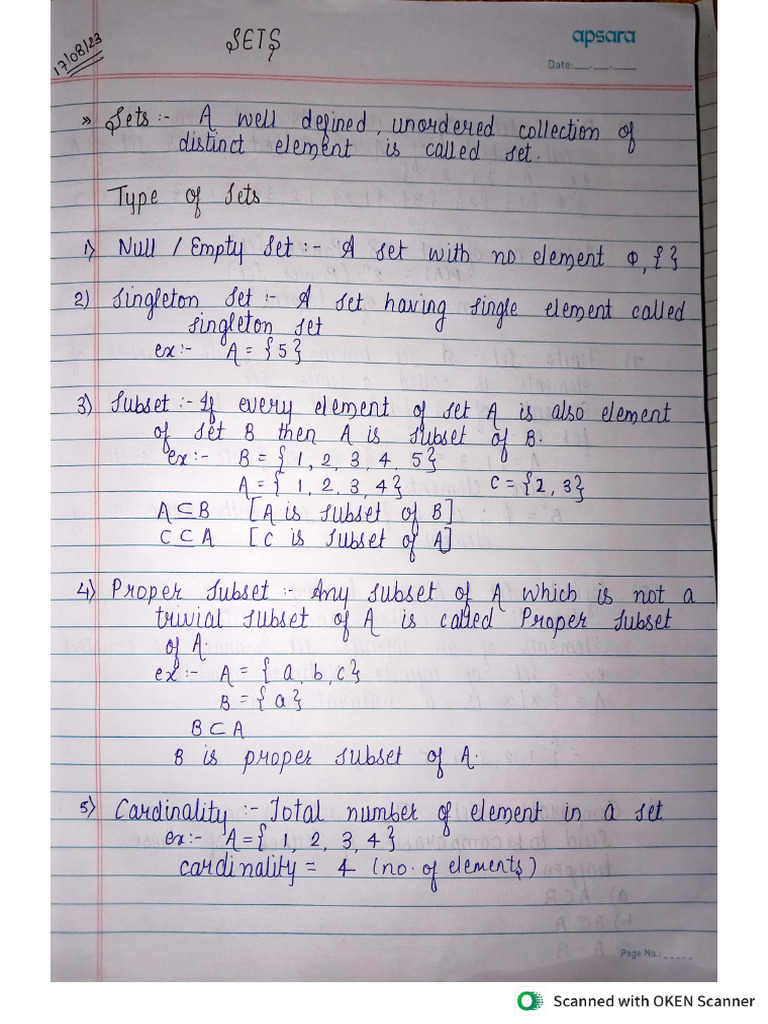 17/08/23
SETS
apsara
Date:__.__.____
» Sets :- A well defined, unordered collection of
distinct element is called set.
Type of Sets
1) Null / Empty Set :- A set with no element Φ, { }
2) Singleton Set :- A set having single element called
singleton set
ex :- A = { 5 }
3) Subset :- If every element of set A is also element
of set B then A is subset of B.
ex :- B = { 1, 2, 3, 4, 5 }
A = { 1, 2, 3, 4 } C = { 2, 3 }
A ⊆ B [A is subset of B]
C ⊆ A [C is subset of A]
4) Proper Subset :- Any subset of A which is not a
trivial subset of A is called Proper Subset
of A.
ex :- A = { a, b, c }
B = { a }
B ⊂ A
B is proper subset of A.
5) Cardinality :- Total number of element in a set
ex :- A = { 1, 2, 3, 4 }
cardinality = 4 (no. of elements)
Page No.:_____
Scanned with OKEN Scanner